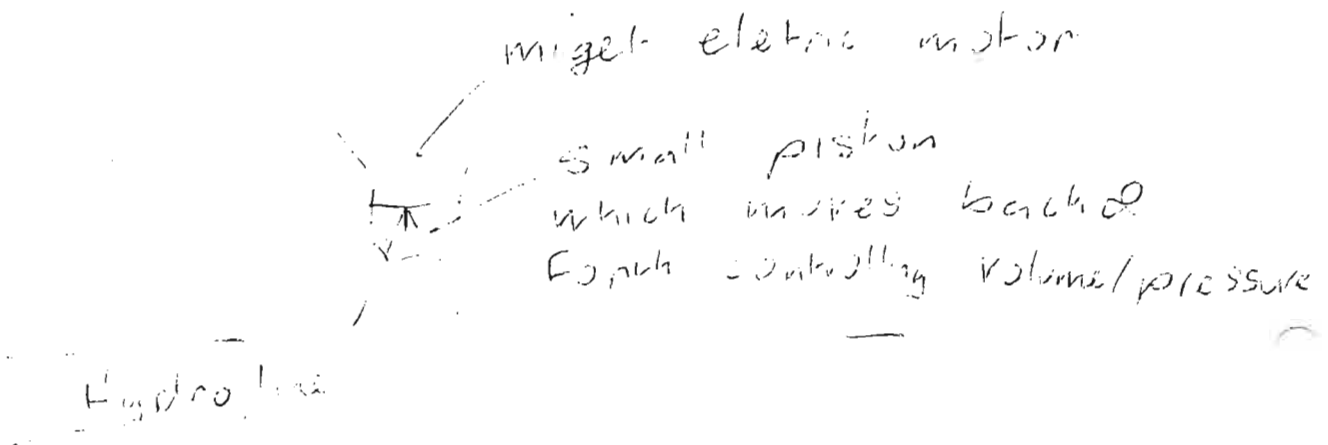 miget eletric motor
small piston
which moves back &
Forth controlling volume/pressure
Hydro line